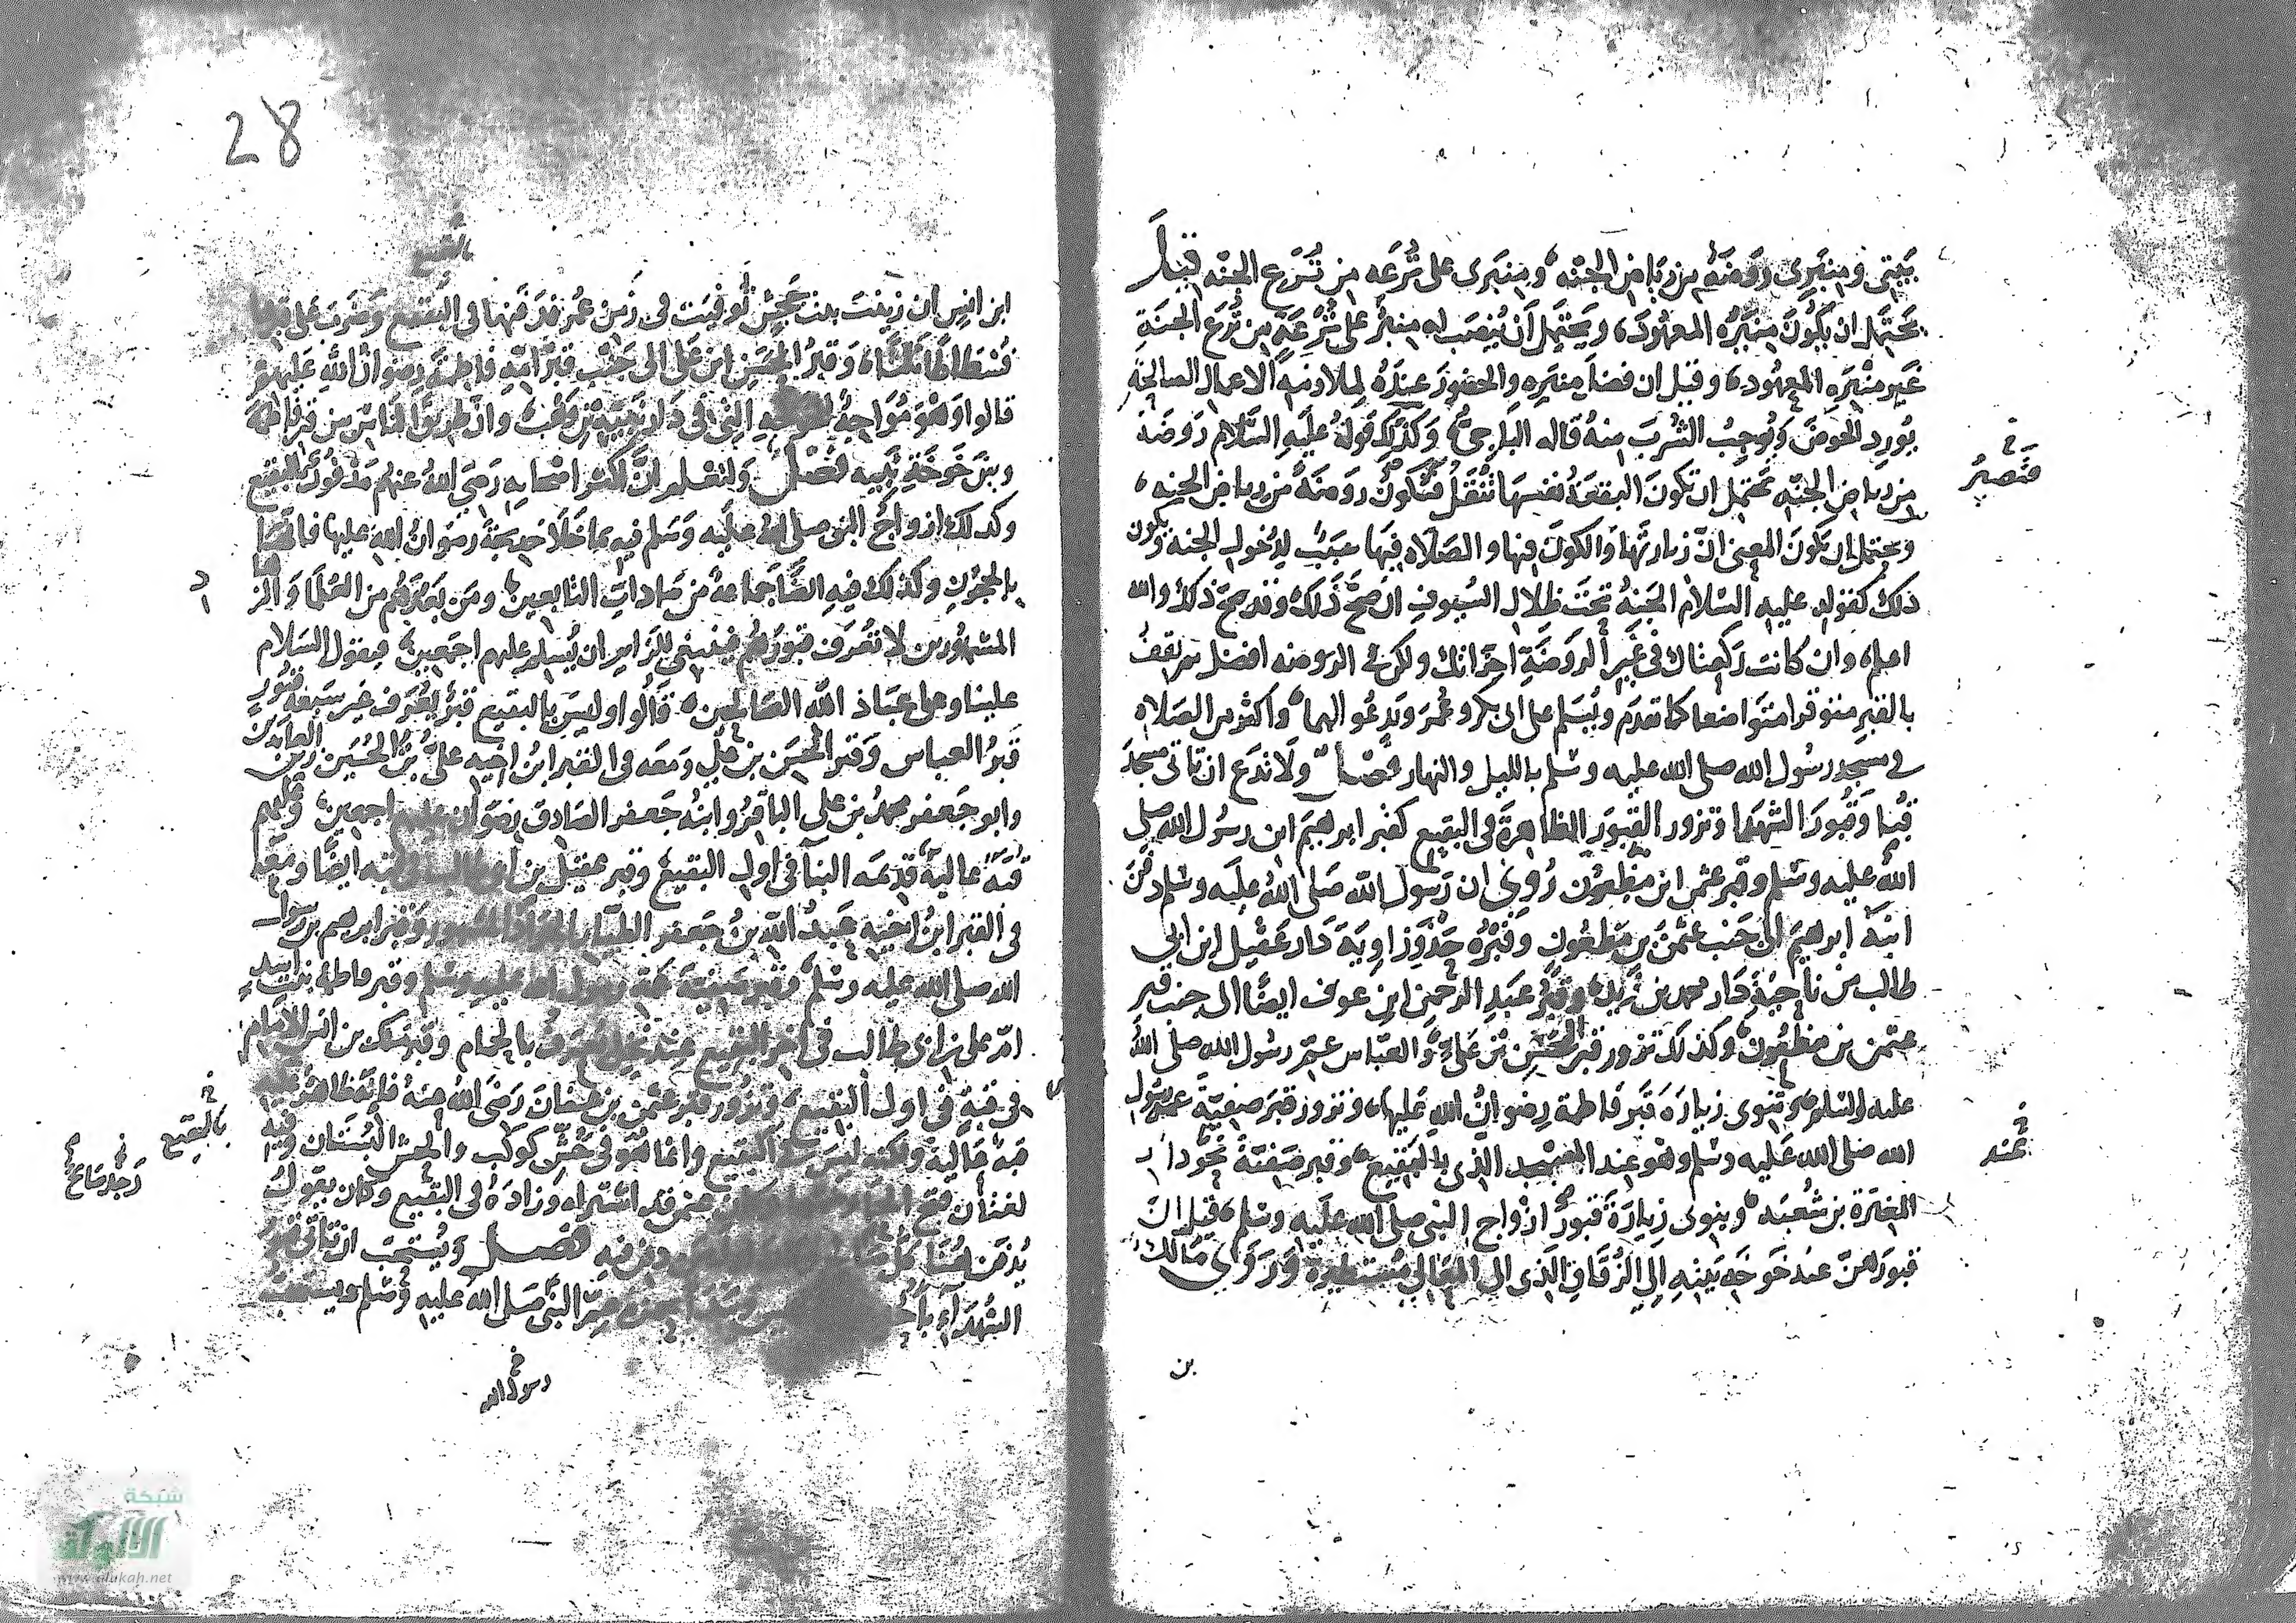 بيتي ومنبري روضة من رياض الجنه ومنبري على ترعه من ترع الجنه قيل
يحتمل ان يكون منبره المعهود ويحتمل أن ينصب له منبر على ترعة من ترع الجنة
غير منبره المعهود وقيل ان فضل منبره والحضور عنده لملازمه الاعمال الصالحة
يورد الحوض ويوجب الشرب منه قاله الباجي وكذلك قوله عليه السلام روضة
من رياض الجنه يحتمل ان تكون البقعة نفسها تنقل فتكون روضة من رياض الجنه
فتصير
ويحتمل ان يكون المعنى ان زيارتها والكون فيها والصلاه فيها سبب لدخول الجنه ويكون
ذلك كقوله عليه السلام الجنة تحت ظلال السيوف ان صح ذلك وقد صح ذلك والله
اعلم وان كانت ركعتاك في غير الروضة اجزاتك ولكن في الروضه افضل ثم تقف
بالقبر متوقرا متواضعا كما تقدم ويسلم على ابي بكر وعمر وتدعو لهما واكثر من الصلاه
في مسجد رسول الله صلى الله عليه وسلم بالليل والنهار فصل ولا تدع ان تاتي مسجد
قبا وقبور الشهدا وتزور القبور الظاهرة في البقيع كقبر ابرهيم ابن رسول الله صلى
الله عليه وسلم وقبر عثمن ابن مظعون روي ان رسول الله صلى الله عليه وسلم دفن
ابنه ابرهيم الى جنب عثمن بن مظعون وقبره حذو زاوية دار عقيل ابن ابي
طالب من ناحية دار محمد بن زيد وقبر عبد الرحمن ابن عوف ايضا الى جنب قبر
عثمن بن مظعون وكذلك تزور قبر الحسن بن علي والعباس عم رسول الله صلى الله
عليه وسلم وتنوى زيارة قبر فاطمة رضوان الله عليها وتزور قبر صفية عمة رسول
الله صلى الله عليه وسلم وهو عند المسجد الذى بالبقيع وقبر صفية نحو دار
عند
المغيرة بن شعبه وينوى زيارة قبور ازواج النبي صلى الله عليه وسلم قيل ان
قبورهن عند خوخة بيته الى الزقاق الذى الى مستطيرة وروى مالك
بن
28
بالبقيع
ابن انس ان زينت بنت جحش توفيت في زمن عمر فدفنها في البقيع وضرب على قبرها
فسطاطا وقبر الحسن ابن على الى جنب قبر امه فاطمة رضوان الله عليهم
قالوا وهو مواجه الخوخه التى في دار نبيه بن وهب وان طريق الناس بين قبر فاطمة
وبين خوخة نبيه فصل ولتعلم ان اكثر اصحابه رضي الله عنهم مدفون بالبقيع
وكذلك ازواج النبي صلى الله عليه وسلم فيه ما خلا خديجة رضوان الله عليها فانها
بالحجون وكذلك فيه ايضا جماعة من سادات التابعين ومن بعدهم من العلما والزهاد
المشهورين لا تعرف قبورهم فينبغي للزاير ان يسلم عليهم اجمعين فيقول السلام
علينا وعلى عباد الله الصالحين قالوا وليس بالبقيع قبر يعرف غير سبعة قبور
قبر العباس وقبر الحسن بن على ومعه في القبر ابن اخيه على بن الحسين زين العابدين
وابو جعفر محمد بن على الباقر وابنه جعفر الصادق رضوان عليهم اجمعين وعليهم
قبة عالية قديمه البنا في اول البقيع وقبر عقيل بن ابي طالب في قبه ايضا ومعه
في القبر ابن اخيه عبد الله بن جعفر الطيار الجواد المشهور وقبر ابرهيم بن رسول
الله صلى الله عليه وسلم وقبر صفية عمة رسول الله عليه وسلم وقبر فاطمة بنت اسد
ام على بن ابى طالب في اخر البقيع بالحمام وقبر ملك بن انس الامام
في قبة في اول البقيع وتزور قبر عثمن بن عفان رضى الله عنه فانه ظاهر عليه
قبة عالية ولكنه ليس من البقيع وانما هو في حش كوكب والحش البستان وفيه
بالبقيع
رجل صالح
لغتان فتح عثمن قد اشتراه وزاده في البقيع وكان يقول
يدفن هنا دفن فيه فصل ويستحب ان تاتى قبور
الشهداء بأحد النبى صلى الله عليه وسلم ويستحب
رسول الله
شبكة
الألوكة
www.alukah.net